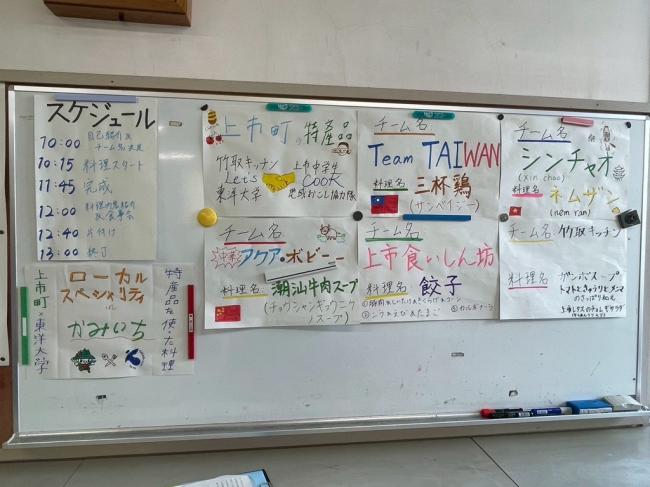 スケジュール
10:00 自己紹介&
チーム名決定
10:15 料理スタート
11:45 完成
12:00 料理の感想や
&食事会
12:40 片付け
13:00 終了
上市町×東洋大学
ローカル
スペシャリティ
in
かみいち
特産品を使った料理
上市町の特産品
竹取キッチン 上市中学生
Let's Cook
東洋大学 地域おこし協力隊
チーム名
アクア・ボビー
料理名 潮汕牛肉スープ
(チョウシャンギュウニク
スープ)
チーム名
Team TAIWAN
料理名 三杯鶏
(サンベイジー)
チーム名
上市食いしん坊
料理名 餃子
チーム名
シンチャオ
(xin chao)
料理名 ネムザン
(nem ran)
チーム名 竹取キッチン
料理名 ガンボスープ
トマトときゅうりと
のさっぱり和え